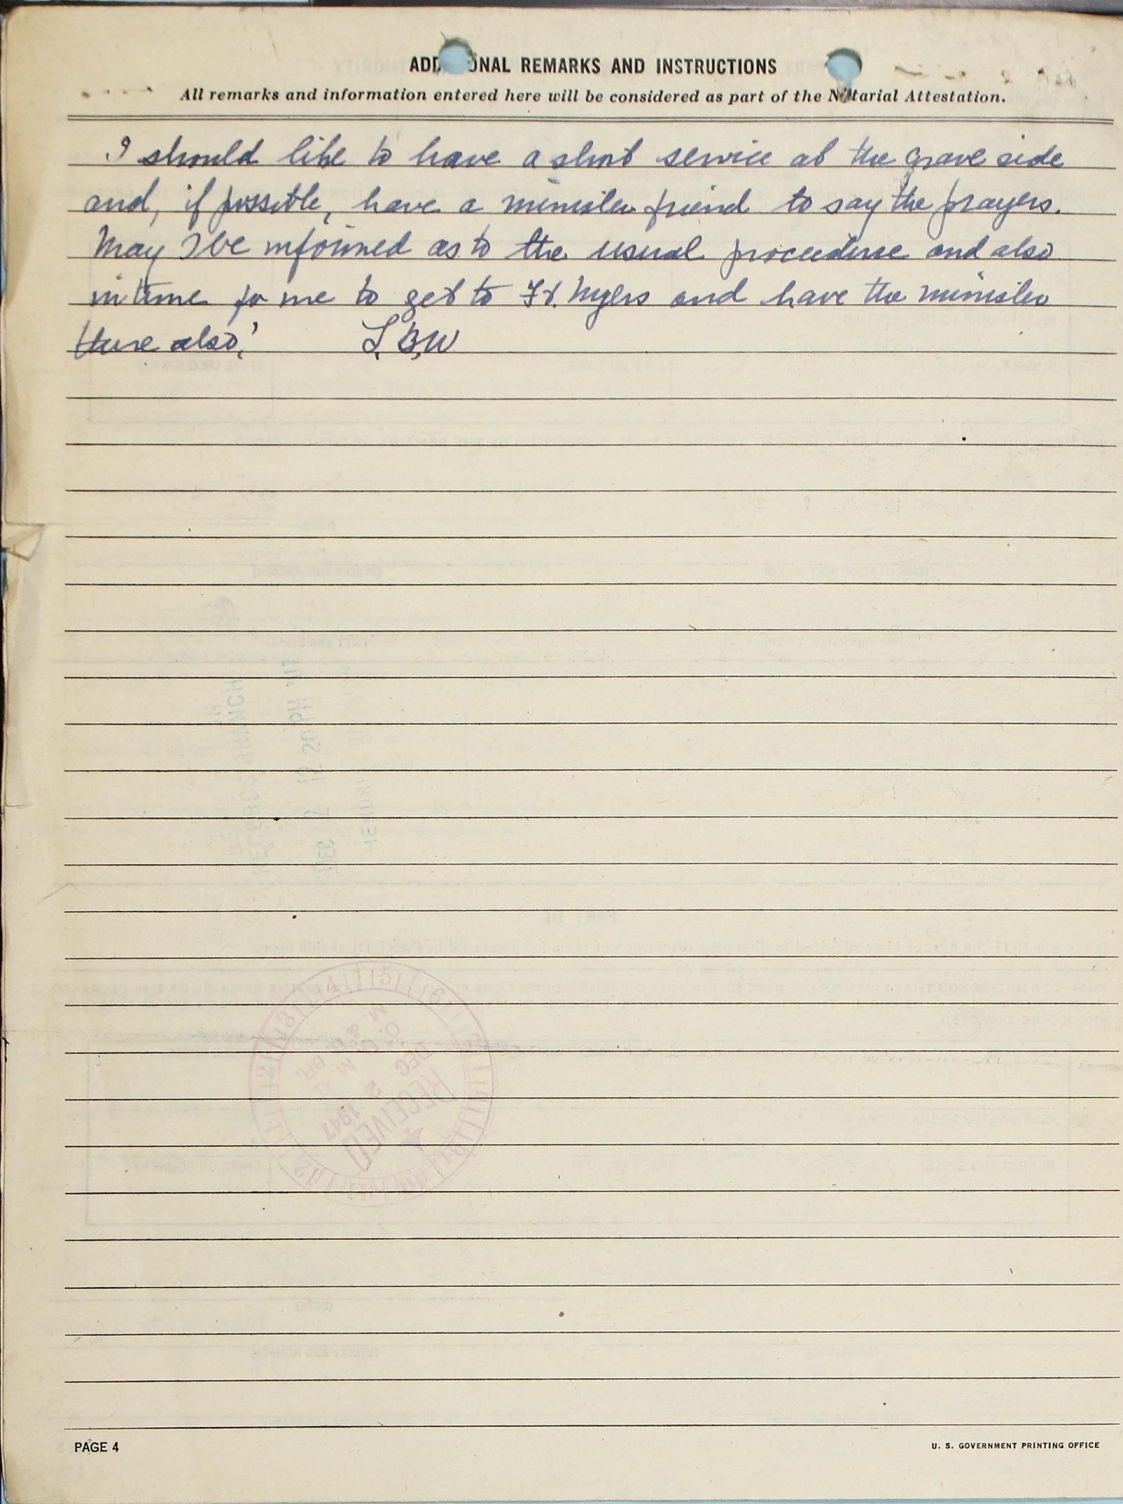 ADDITIONAL REMARKS AND INSTRUCTIONS
All remarks and information entered here will be considered as part of the Notarial Attestation.
I should like to have a short service at the grave side
and, if possible, have a minister friend to say the prayers.
May I be informed as to the usual procedure and also
in time for me to get to Ft. Myers and have the minister
there also.
L.B.W
RECEIVED
DEC 2 1947
PAGE 4
U. S. GOVERNMENT PRINTING OFFICE